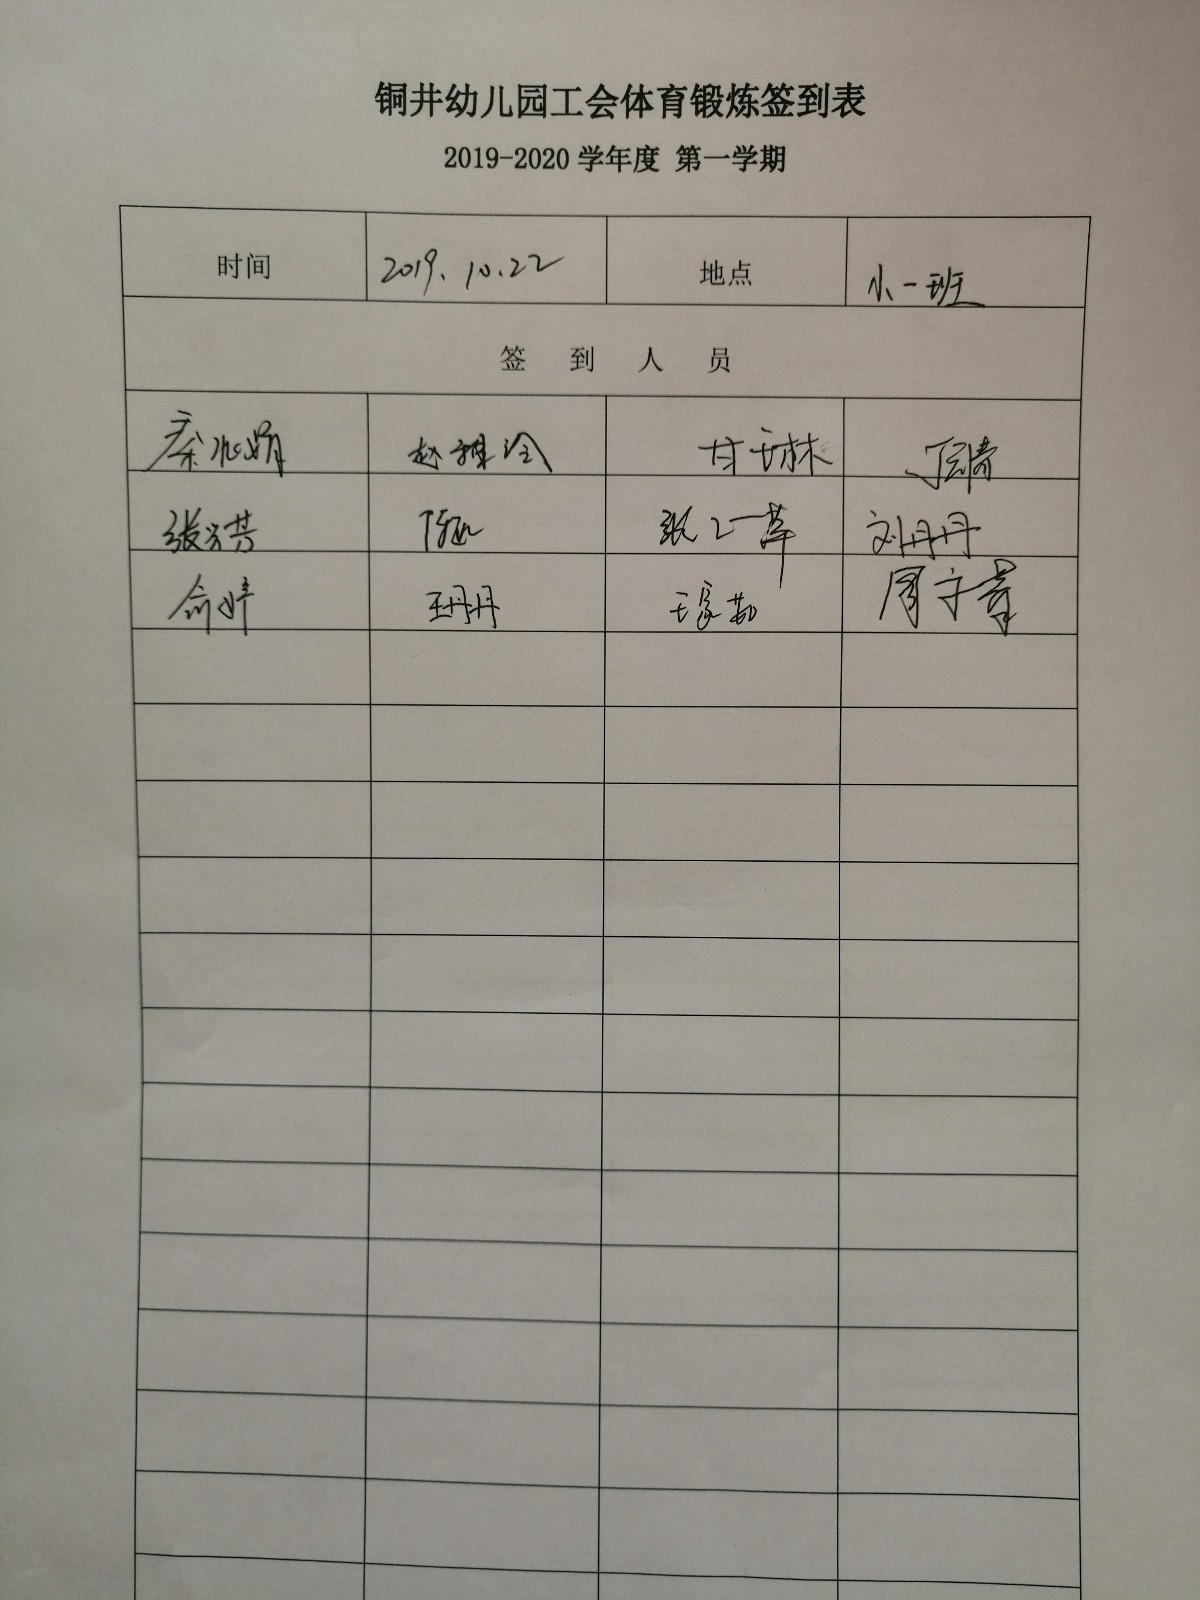 铜井幼儿园工会体育锻炼签到表
2019-2020 学年度 第一学期
时间 2019.10.22 地点 小一班
签 到 人 员
秦 娟 赵雅玲 甘玉林
张芳芸 张 萍 刘丹丹
俞婷 王丹丹 周